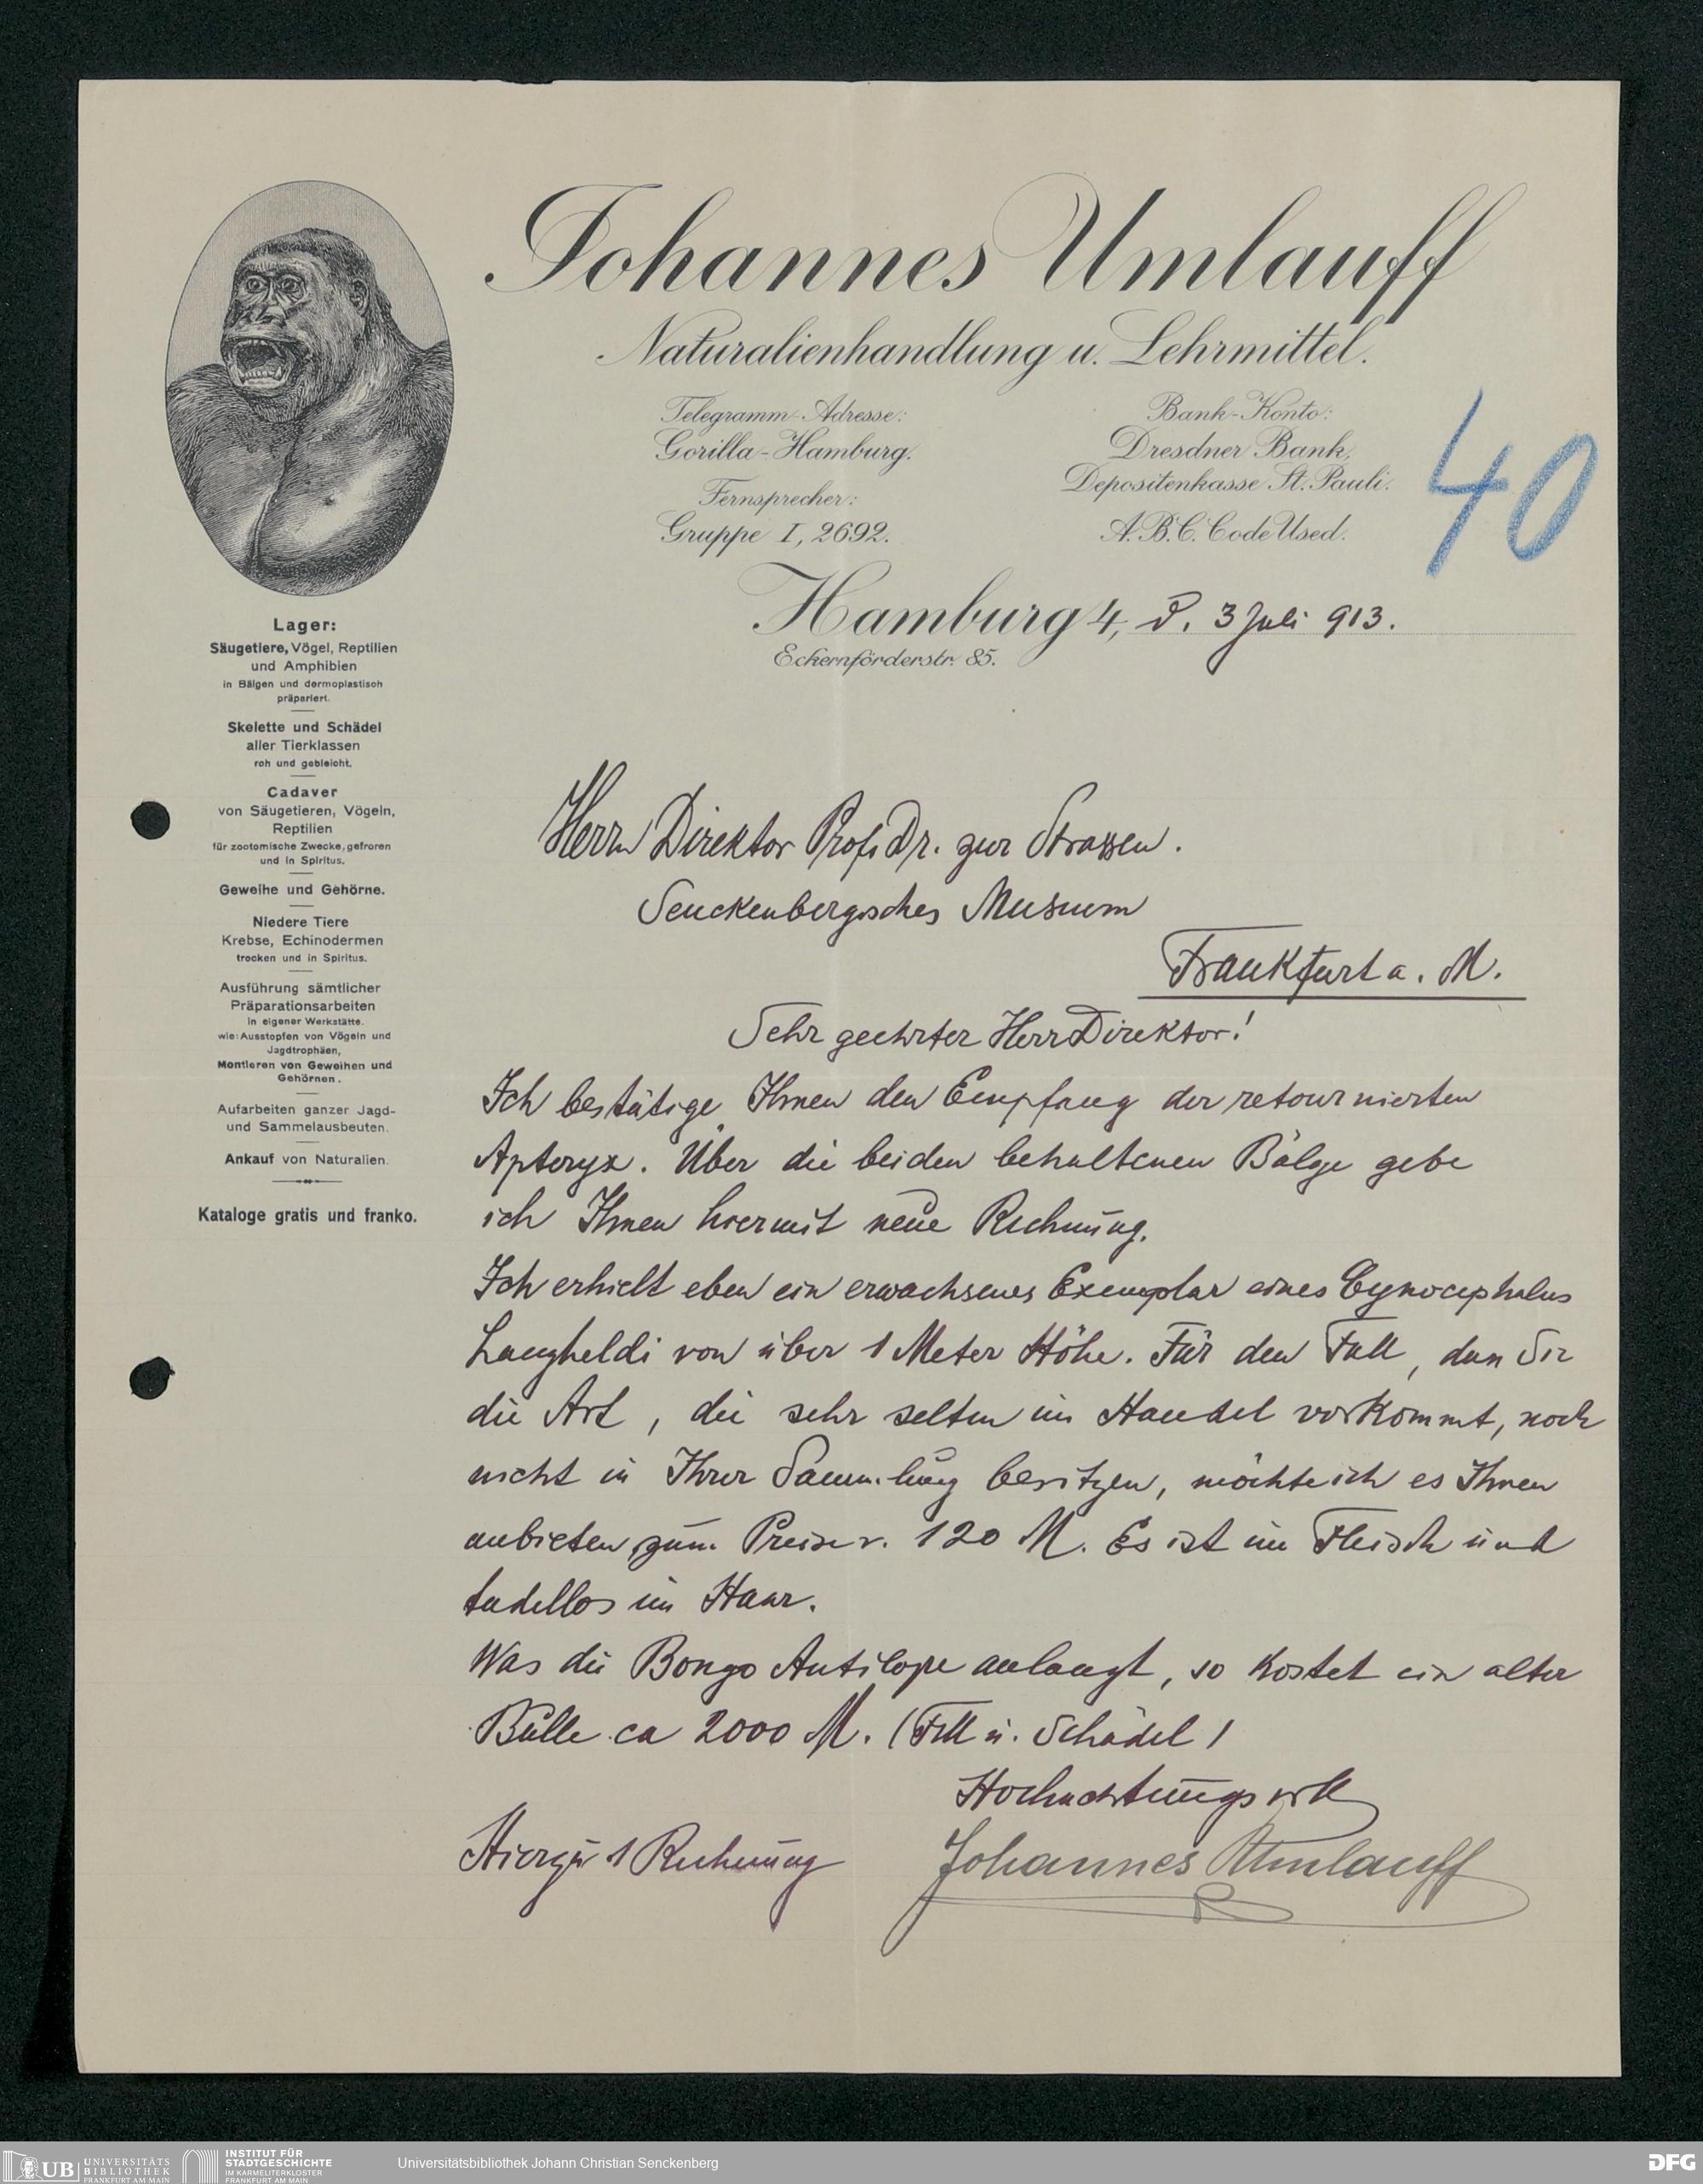 Johannes Umlauff
Naturalienhandlung u. Lehrmittel.
Telegramm-Adresse:
Gorilla-Hamburg.
Fernsprecher:
Gruppe I, 2692.
Bank-Konto:
Dresdner Bank,
Depositenkasse St. Pauli.
A.B.C. Code Used.
40
Hamburg 4, d. 3 Juli 913.
Eckernförderstr. 85.
Lager:
Säugetiere, Vögel, Reptilien
und Amphibien
in Bälgen und dermoplastisch
präpariert.
Skelette und Schädel
aller Tierklassen
roh und gebleicht.
Cadaver
von Säugetieren, Vögeln,
Reptilien
für zootomische Zwecke, gefroren
und in Spiritus.
Geweihe und Gehörne.
Niedere Tiere
Krebse, Echinodermen
trocken und in Spiritus.
Ausführung sämtlicher
Präparationsarbeiten
in eigener Werkstätte.
wie: Ausstopfen von Vögeln und
Jagdtrophäen,
Montieren von Geweihen und
Gehörnen.
Aufarbeiten ganzer Jagd-
und Sammelausbeuten.
Ankauf von Naturalien.
Kataloge gratis und franko.
Herrn Direktor Prof. Dr. zur Strassen.
Senckenbergisches Museum
Frankfurt a. M.
Sehr geehrter Herr Direktor!
Ich bestätige Ihnen den Empfang der retournierten
Apteryx. Über die beiden behaltenen Bälge gebe
ich Ihnen hiermit neue Rechnung.
Ich erhielt eben ein erwachsenes Exemplar eines Cynocephalus
Langheldi von über 1 Meter Höhe. Für den Fall, dass Sie
die Art, die sehr selten im Handel vorkommt, noch
nicht in Ihrer Sammlung besitzen, möchte ich es Ihnen
anbieten zum Preise v. 120 M. Es ist im Fleisch und
tadellos im Haar.
Was die Bongo Antilope anlangt, so kostet ein alter
Bulle ca 2000 M. (Fell u. Schädel)
Hochachtungsvoll
Hierzu 1 Rechnung
Johannes Umlauff
R
UB UNIVERSITÄTS
BIBLIOTHEK
FRANKFURT AM MAIN
INSTITUT FÜR
STADTGESCHICHTE
IM KARMELITERKLOSTER
FRANKFURT AM MAIN
Universitätsbibliothek Johann Christian Senckenberg
DFG